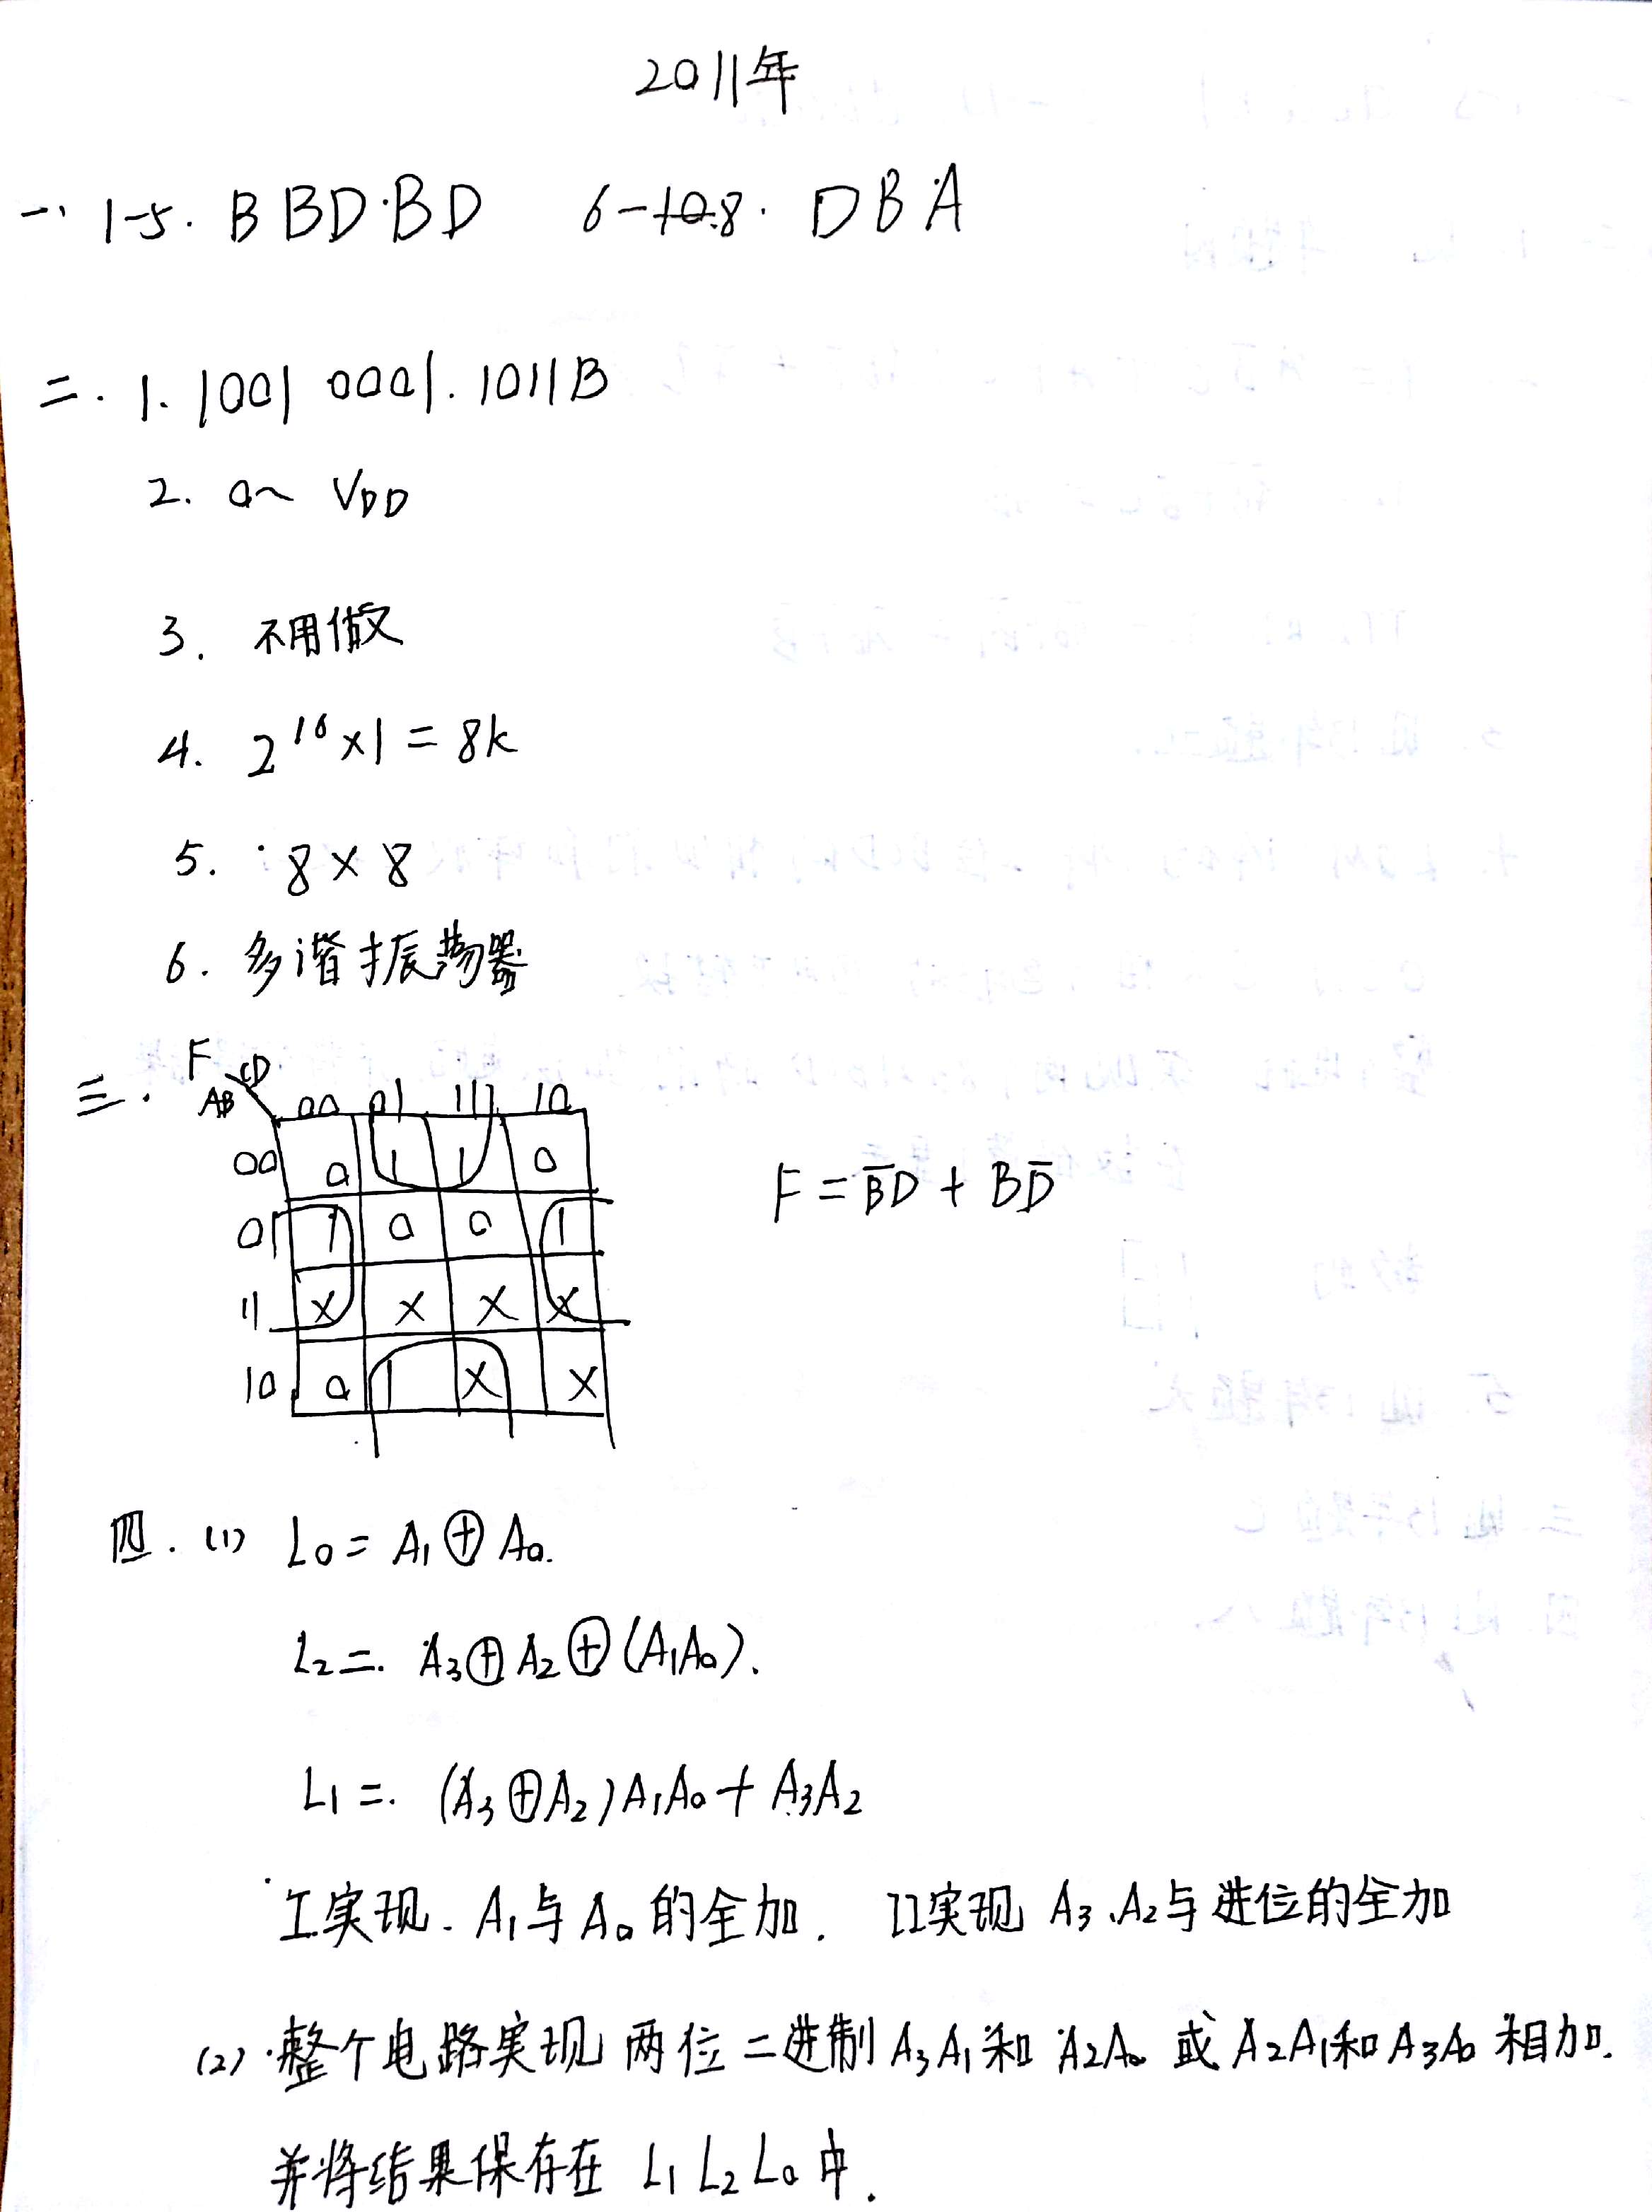 2011年
一、1-5. BBDBD 6-8. DBA
二. 1. 1001 0001.1011B
2. 0~VDD
3. 不用做
4. 2^16×1=8k
5. 8×8
6. 多谐振荡器
三. F CD
AB 00 01 11 10
00 0 1 1 0
01 1 0 0 1
F = B̅D + BD̅
11 × × × ×
10 0 1 × ×
四. (1) L0 = A1⊕A0.
L2 = A3⊕A2⊕(A1A0).
L1 = (A3⊕A2)A1A0 + A3A2
I实现 A1与A0的全加. II实现 A3、A2与进位的全加
(2) 整个电路实现两位二进制A3A1和A2A0或A2A1和A3A0相加.
并将结果保存在 L1L2L0中.